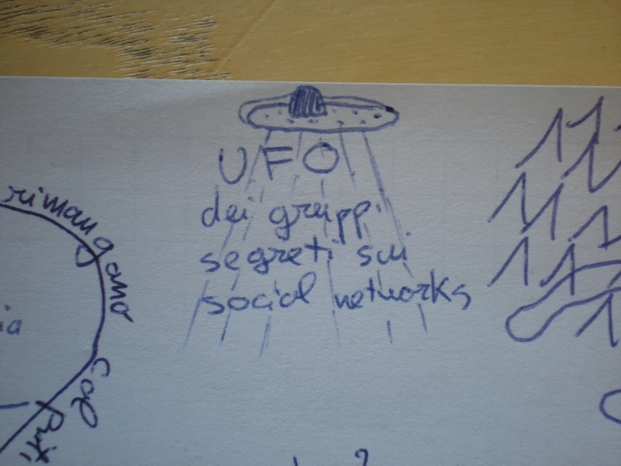 UFO
dei gruppi
segreti sui
social networks
rimangano
ia
col
piti
?